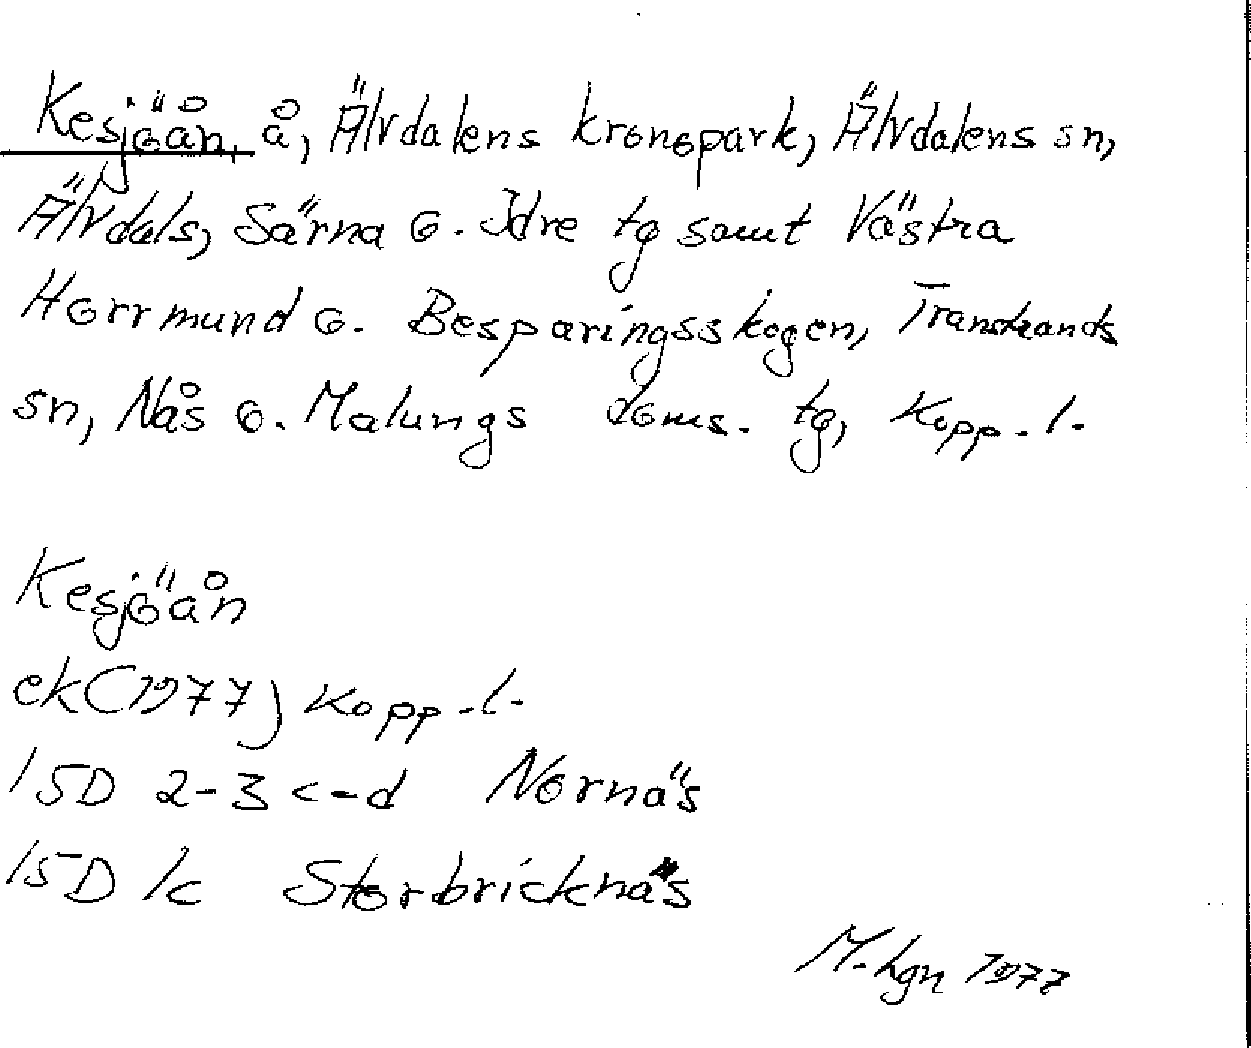 Kesjöån, å, Älvdalens kronopark, Älvdalens sn,
Älvdals, Särna o. Idre tg samt Västra
Horrmund o. Besparingsskogen, Transtrands
sn, Nås o. Malungs doms. tg, Kopp. l.
Kesjöån
ek (1977) Kopp. l.
15D 2-3 c-d Nornäs
15D 1c Storbricknäs
M. hgn 1977